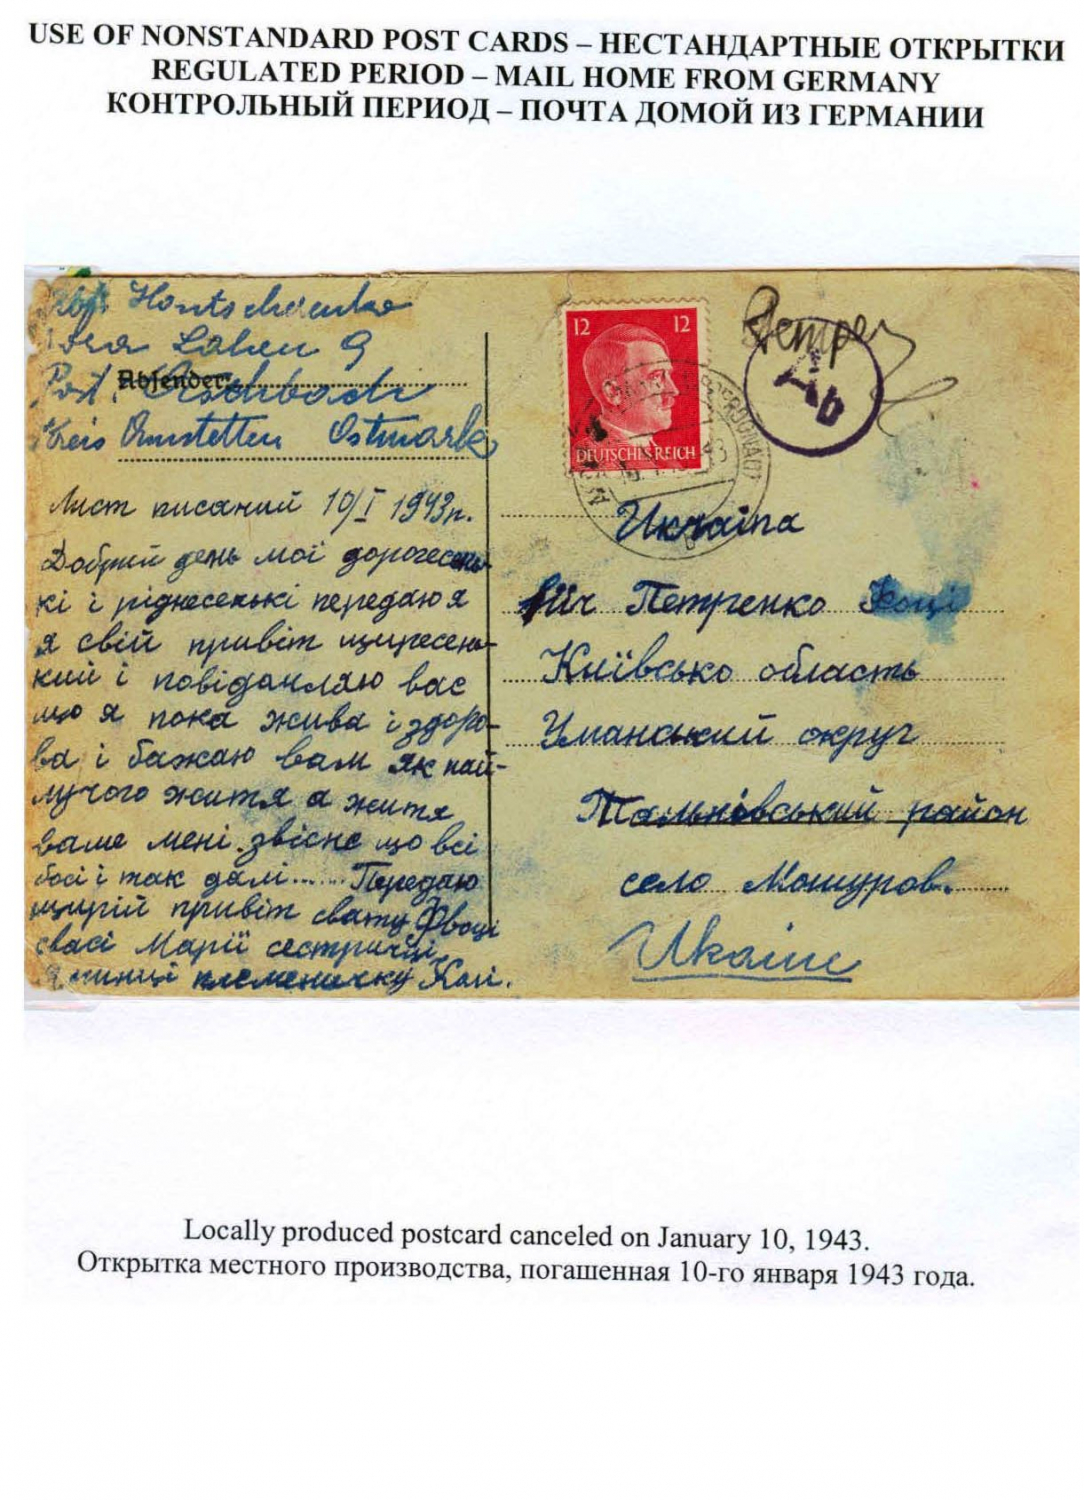 USE OF NONSTANDARD POST CARDS – НЕСТАНДАРТНЫЕ ОТКРЫТКИ
REGULATED PERIOD – MAIL HOME FROM GERMANY
КОНТРОЛЬНЫЙ ПЕРИОД – ПОЧТА ДОМОЙ ИЗ ГЕРМАНИИ
Hontschenko
Lahen 9
Post.
Absender:
Kreis Amstetten Ostmark
12 12
DEUTSCHES REICH
Ab
Лист писаний 10/I 1943р.
Добрий день мої дорогесень-
кі і ріднесенькі передаю я
я свій привіт щиресень-
кий і повідамляю вас
що я пока жива і здоро-
ва і бажаю вам як най-
лучого життя а життя
ваше мені звісне що всі
босі і так далі...... Передаю
щирій привіт свату
свасі Марії сестричці
племеничку Колі.
Україна
Петренко
Київсько область
Уманський округ
Тальнівський район
село Мошуров.
Ukaine
Locally produced postcard canceled on January 10, 1943.
Открытка местного производства, погашенная 10-го января 1943 года.